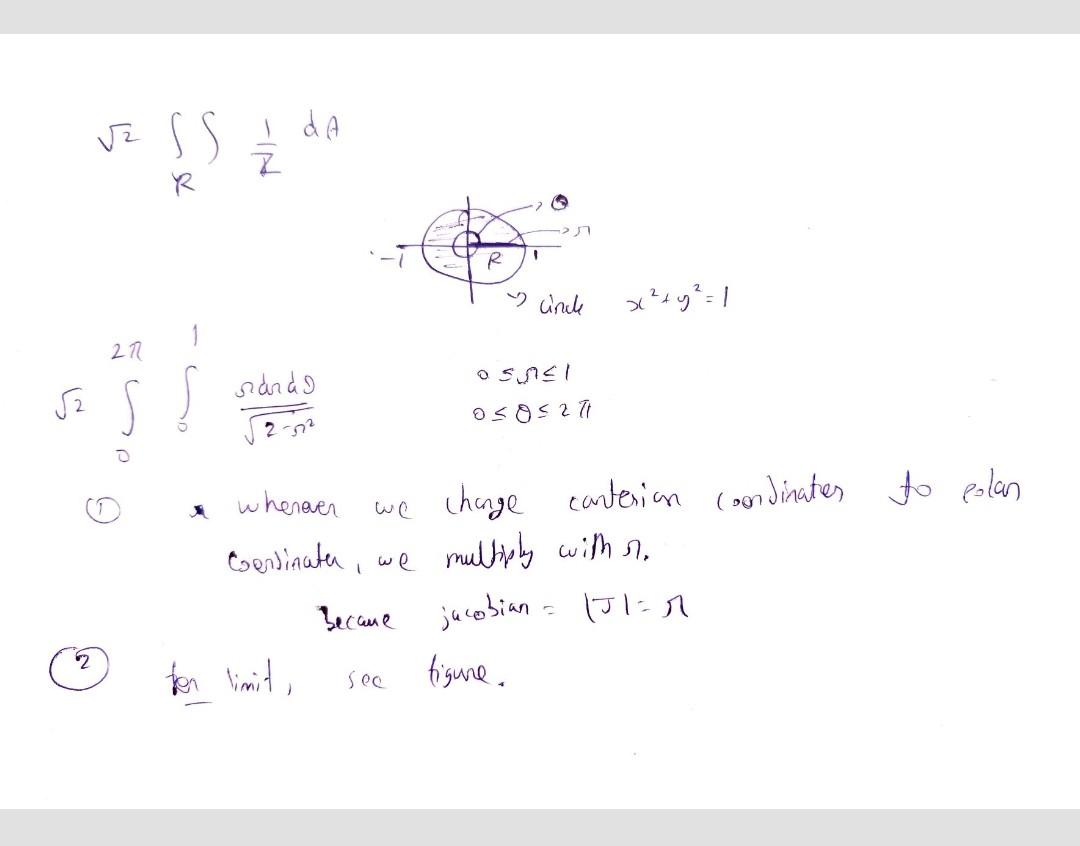 √2 ∫∫ 1/Z dA
R
θ
r
-1 R 1
circle x²+y²=1
2π 1
√2 ∫ ∫ r dr dθ / √2-r² 0 ≤ r ≤ 1
0 0 0 ≤ θ ≤ 2π
① * whenever we change cartesian coordinates to polar
coordinates, we multiply with r.
Because jacobian = |J| = r
② for limit, see figure.